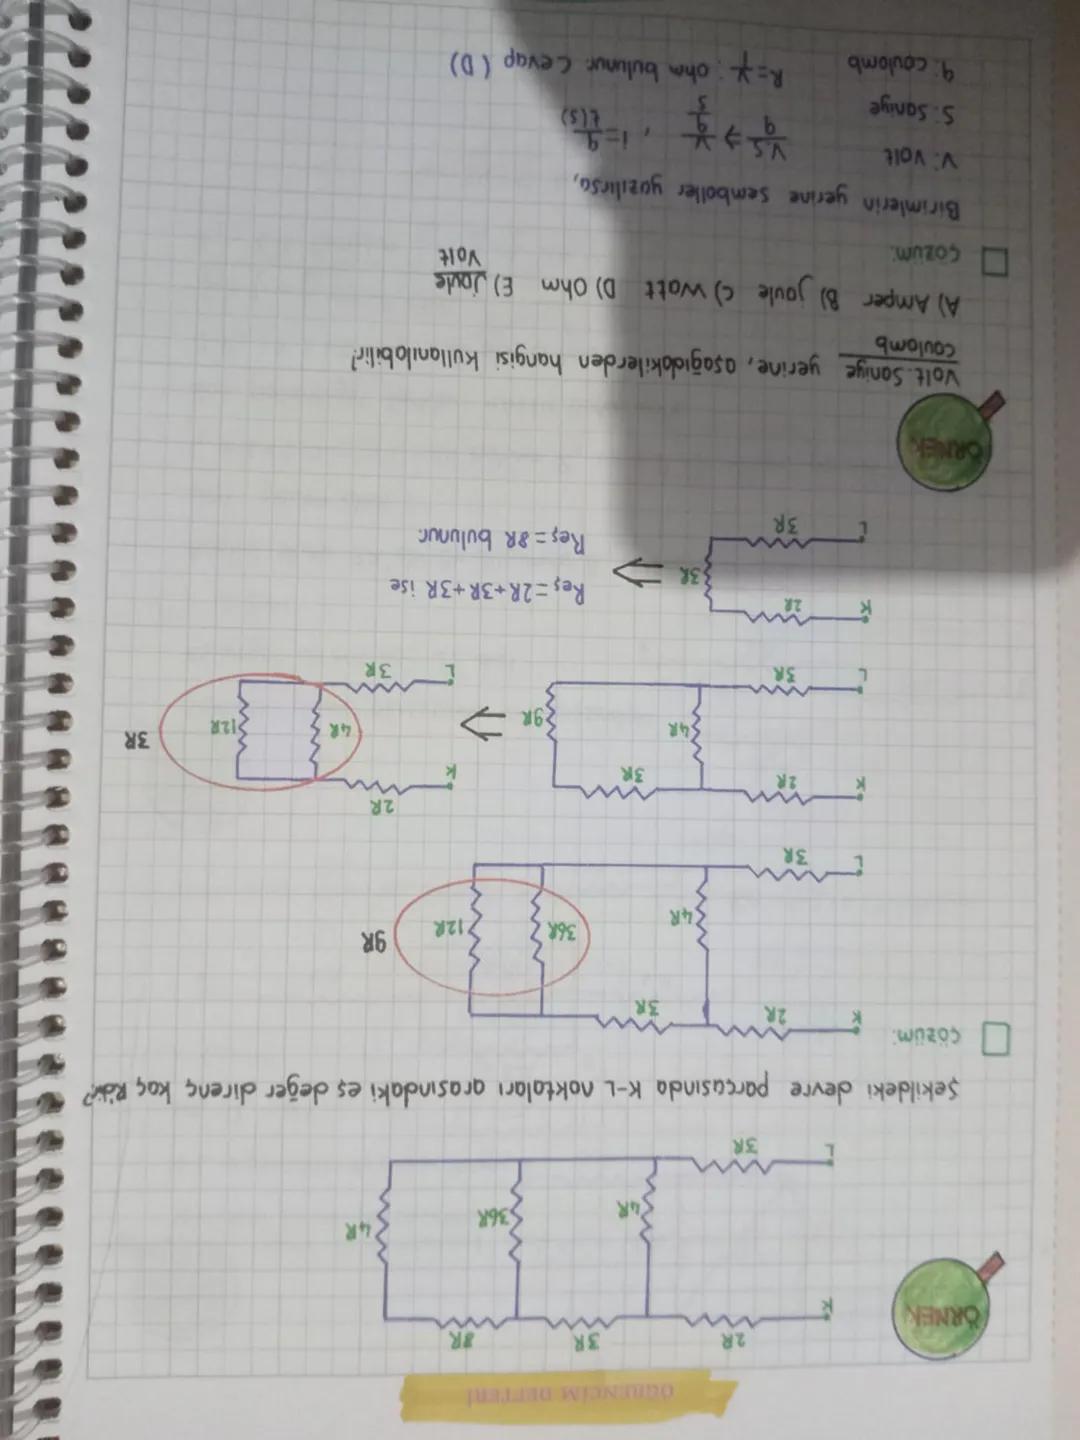 ÖĞRENCİM DEFTERİ
ÖRNEK
K 2R 3R 8R
4R 36R 4R
L 3R
Şekildeki devre parçasında K-L noktaları arasındaki eş değer direnç kaç R'dir?
Çözüm:
K 2R 3R
4R 36R 12R 9R
L 3R
K 2R 3R
4R 9R
L 3R
K 2R
4R 12R 3R
L 3R
K 2R
3R
L 3R
Reş=2R+3R+3R ise
Reş=8R bulunur.
ÖRNEK
Volt.Saniye / coulomb yerine, aşağıdakilerden hangisi kullanılabilir?
A) Amper B) joule C) Watt D) Ohm E) joule / Volt
Çözüm:
Birimlerin yerine semboller yazılırsa,
V: Volt
S: Saniye
q: coulomb
V.S / q ⇒ V / q / S , I = q / t(s)
R = V / I : ohm bulunur. Cevap (D)